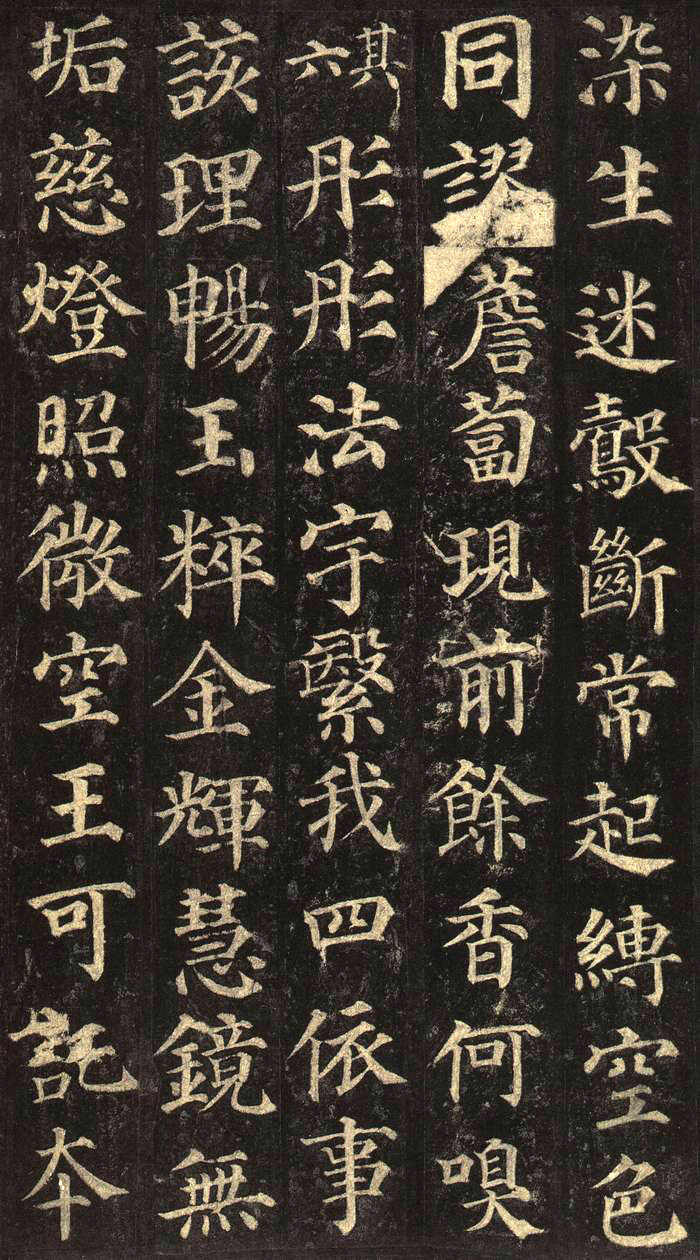 染生迷鷇斷常起縛空色
同謬薝葍現前餘香何嗅
其六彤彤法宇繄我四依事
該理暢玉粹金輝慧鏡無
垢慈燈照微空王可託本